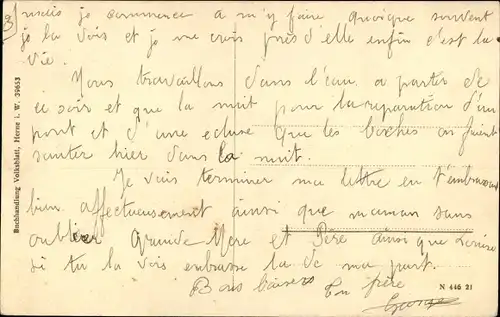 3)
mais je commence a m'y faire quoique souvent
je la vois et je me crois près d'elle enfin c'est la
vie.
Nous travaillons dans l'eau a partir de
ce soir et que la nuit pour la reparation d'un
pont et d'une ecluse que les boches on fait
sauter hier dans la nuit.
Je vais terminer ma lettre en t'embrassant
bien affectueusement ainsi que maman sans
oublier Grande Mere et Père ainsi que Louise
si tu la vois embrasse la de ma part.
Bons baisers Ton frère
George
Buchhandlung Volksblatt, Herne i. W. 39653
N 446 21